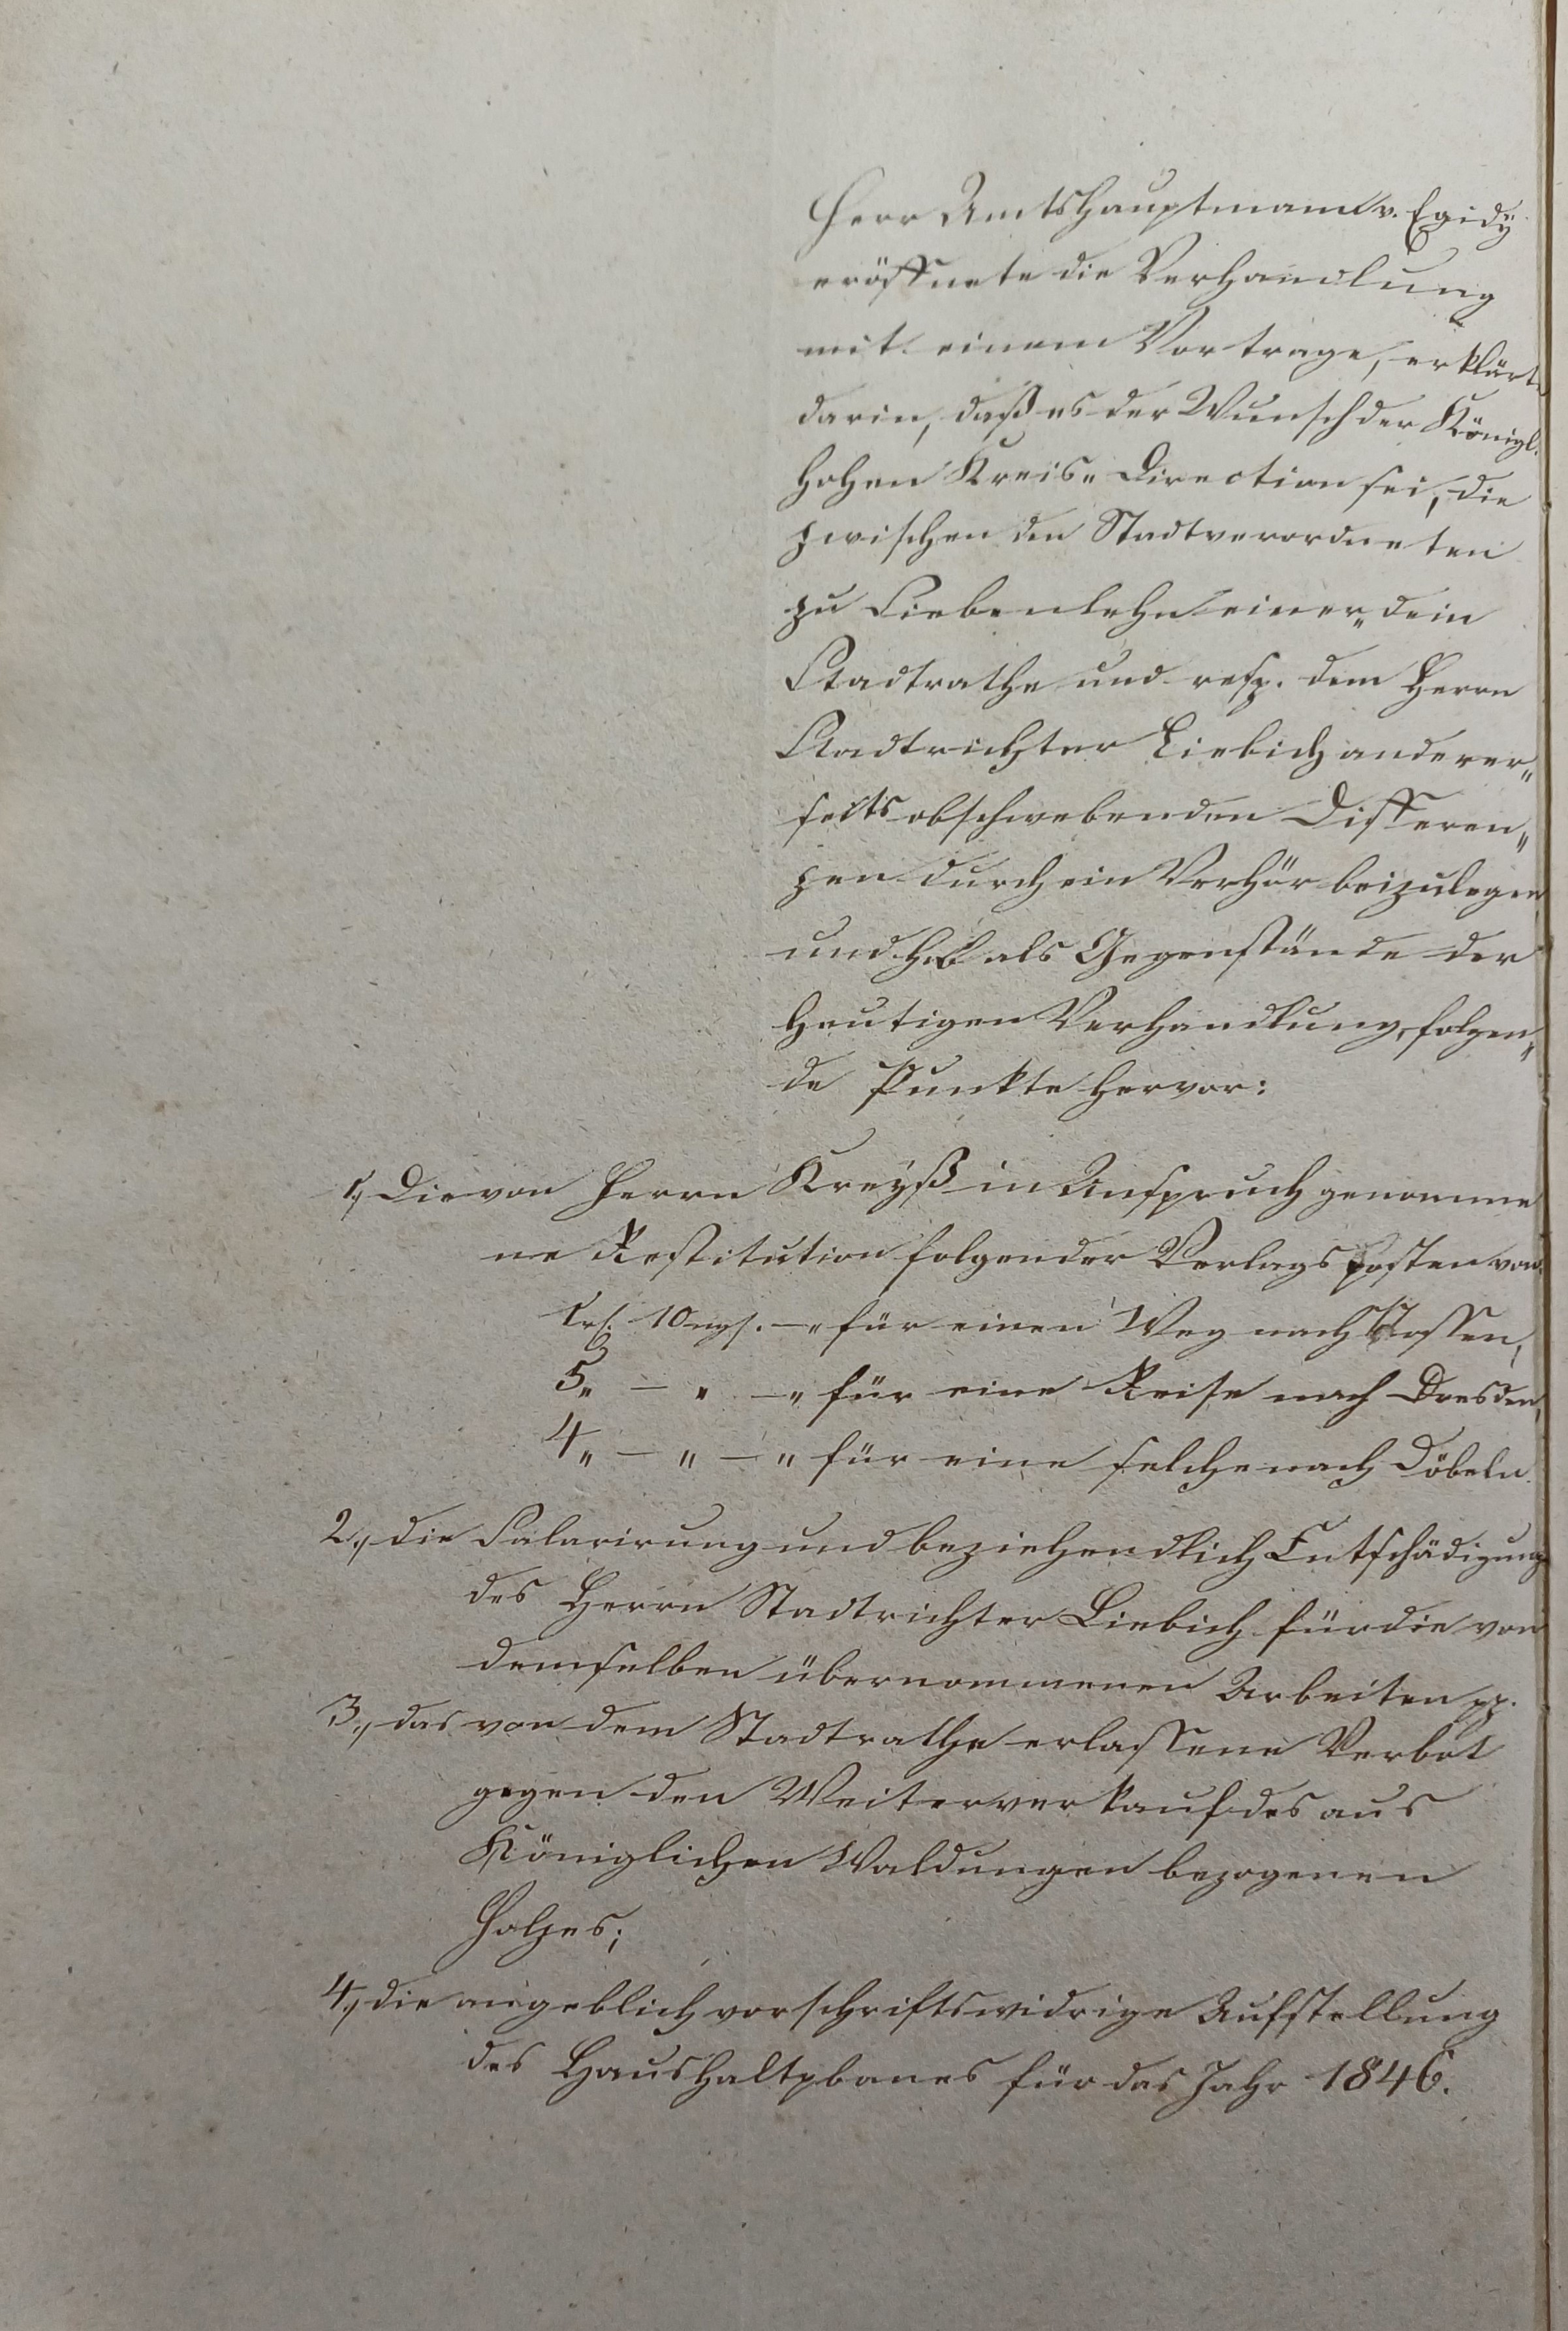 Herr Amtshauptmann v. Egidÿ
eröffnete die Verhandlung
mit einem Vortrage, erklärte
darin, daß es der Wunsch der Königl.
hohen Kreis„Direction sei, die
zwischen den Stadtverordneten
zu Siebenlehn einer„ dem
Stadtrathe und resp. dem Herrn
Stadtrichter Liebich anderer„
seits obschwebenden Differen„
zen durch ein Verhör beizulegen
und hob als Gegenstände der
heutigen Verhandlung, folgen„
de Punkte hervor:
1., Die von Herrn Kreyß in Anspruch genomme
ne Restitution folgender Verlagsposten von:
1 rℓ. 10 ngr. —„ für einen Weg nach Nossen,
5 „ — „ —„ für eine Reise nach Dresden,
4 „ — „ —„ für eine solche nach Döbeln.
2., die Salarirung und beziehendlich Entschädigung
des Herrn Stadtrichter Liebich für die von
demselben übernommenen Arbeiten pp.
3., das von dem Stadtrathe erlassene Verbot
gegen den Weiterverkauf des aus
Königlichen Waldungen bezogenen
Holzes;
4., die angeblich vorschriftswidrige Aufstellung
des Haushaltplanes für das Jahr 1846.